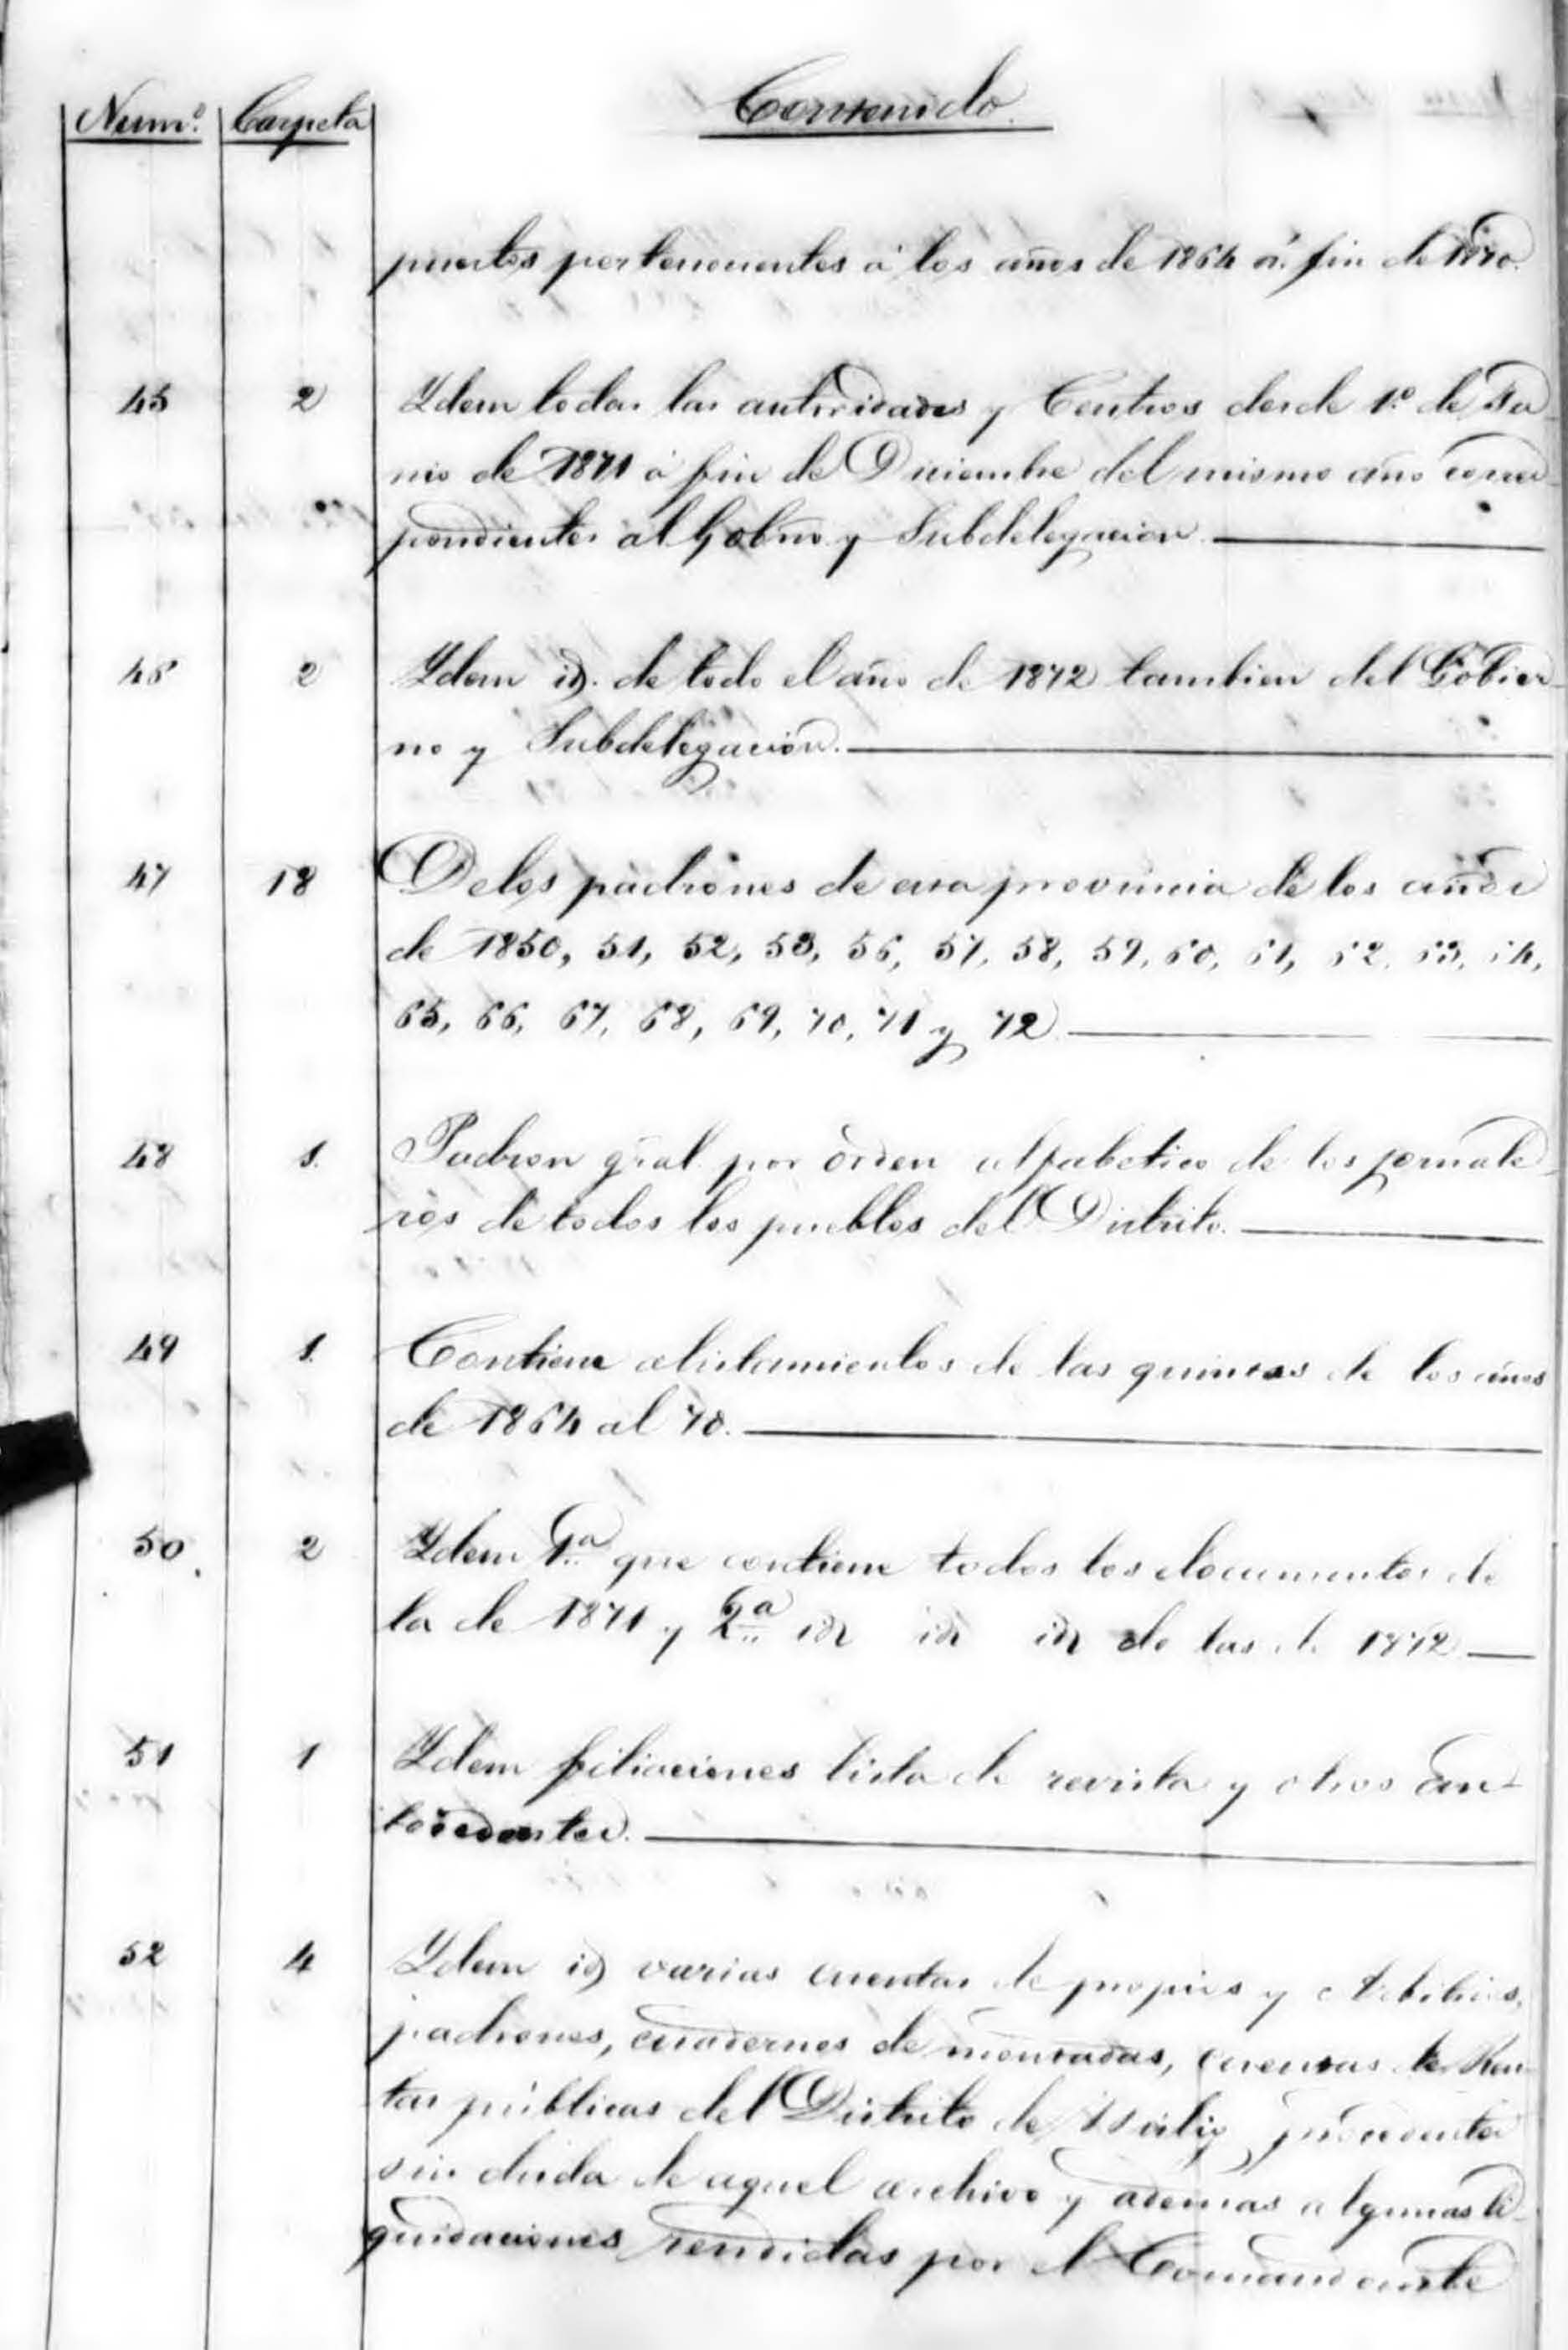 Num.º Carpeta Contenido.
puertos pertenecientes á los años de 1864 á fin de 1870.
45 2 Ydem todas las autoridades y Centros desde 1.º de
nio de 1871 á fin de Diciembre del mismo año corres-
pondientes al Gobno. y Subdelegacion
46 2 Ydem id. de todo el año de 1872 tambien del Gobier-
no y Subdelegacion.
47 18 De los padrones de esa provincia de los años
de 1850, 51, 52, 53, 56, 57, 58, 59, 60, 61, 62, 63, 64,
65, 66, 67, 68, 69, 70, 71 y 72
48 1. Padron gral. por órden alfabetico de los jornale-
ros de todos los pueblos del Distrito.
49 1. Contiene alistamientos de las quintas de los años
de 1864 al 70.
50 2 Ydem 1.ª que contiene todos los documentos de
la de 1871 y 2.ª id id id de las de 1872
51 1 Ydem filiaciones lista de revista y otros an-
tecedentes.
52 4 Ydem id varias cuentas de propios y Arbitrios,
padrones, cuadernos de cuentas de Ren-
tas públicas del Distrito de procedentes
sin duda de aquel archivo y ademas algunas li-
quidaciones rendidas por el Comandante